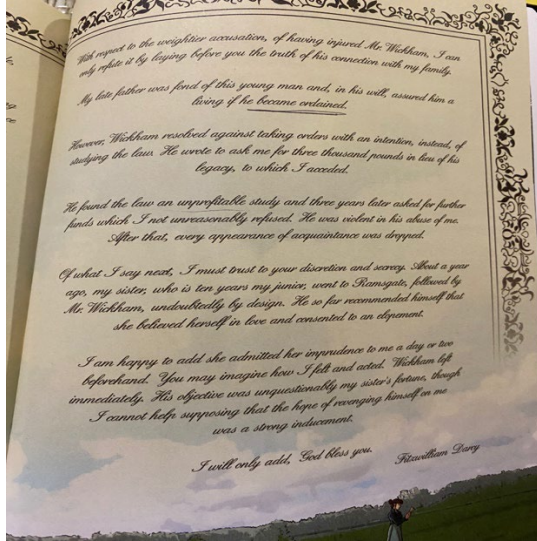 With respect to the weightier accusation, of having injured Mr. Wickham, I can
only refute it by laying before you the truth of his connection with my family.
My late father was fond of this young man and, in his will, assured him a
living if he became ordained.
However, Wickham resolved against taking orders with an intention, instead, of
studying the law. He wrote to ask me for three thousand pounds in lieu of his
legacy, to which I acceded.
He found the law an unprofitable study and three years later asked for further
funds which I not unreasonably refused. He was violent in his abuse of me.
After that, every appearance of acquaintance was dropped.
Of what I say next, I must trust to your discretion and secrecy. About a year
ago, my sister, who is ten years my junior, went to Ramsgate, followed by
Mr. Wickham, undoubtedly by design. He so far recommended himself that
she believed herself in love and consented to an elopement.
I am happy to add she admitted her imprudence to me a day or two
beforehand. You may imagine how I felt and acted. Wickham left
immediately. His objective was unquestionably my sister's fortune, though
I cannot help supposing that the hope of revenging himself on me
was a strong inducement.
I will only add, God bless you.
Fitzwilliam Darcy